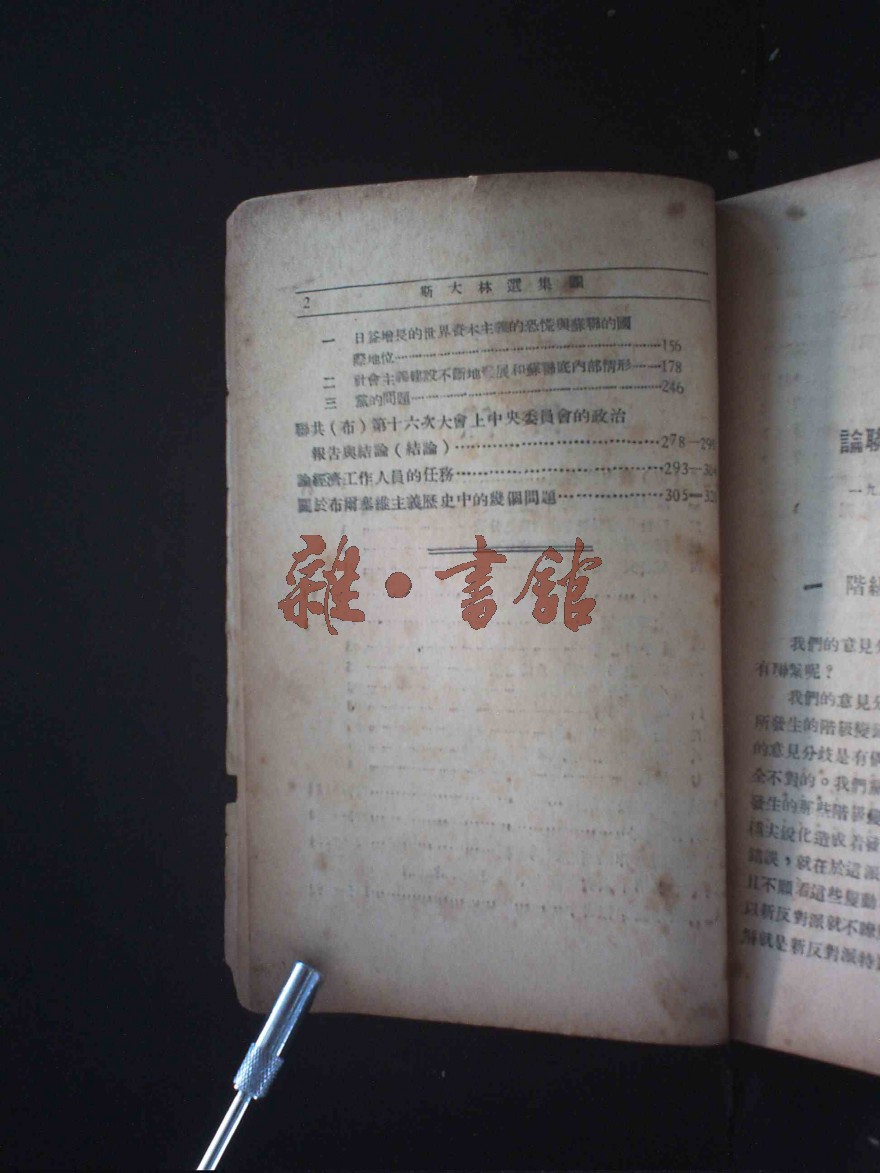 2
斯大林選集
一 日益增長的世界資本主義的恐慌與蘇聯的國
際地位……156
二 社會主義建設不斷地發展和蘇聯底內部情形……178
三 黨的問題……246
聯共(布)第十六次大會上中央委員會的政治
報告與結論(結論)……278—29
論經濟工作人員的任務……293—30
關於布爾塞維主義歷史中的幾個問題……305—32
雜•書館
論聯
一九
一 階級
我們的意見分
有聯繫呢?
我們的意見分
所發生的階級變
的意見分歧是有
全不對的。我們黨
發生的那些階級變
錯誤,就在於這派
且不顧看這些變動
以新反對派就不瞭
就是新反對派特